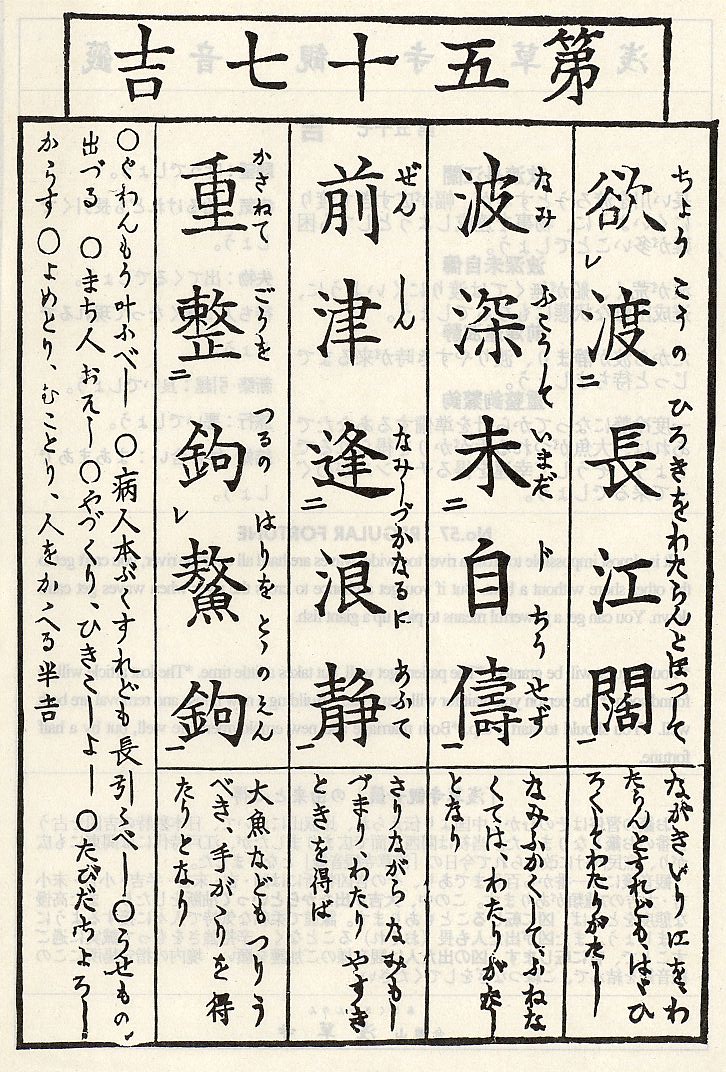 第五十七吉
ちょうこうのひろきをわたらんとほつして
欲レ渡二長江闊一
ながきいり江をわ
たらんとすれどもはゞひ
ろくてわたりがたし
なみふこうしていまだどちうせず
波深未二自儔一
なみふかくて、ふねな
くてはわたりがたし
となり
ぜんしんなみしづかなるにあふて
前津逢二浪静一
さりながらなみもし
づまりわたりやすき
ときを得ば
かさねてごうをつるのはりをとゝのえん
重整二鉤レ鰲鉤一
大魚などもつりう
べき、手がゝりを得
たりとなり
〇ぐわんもう叶ふべし 〇病人本ぶくすれども長引くべし 〇うせもの
出づる 〇まち人おそし 〇やづくり、ひきこしよし 〇たびだちよろし
からず 〇よめとり、むことり、人をかゝへる半吉